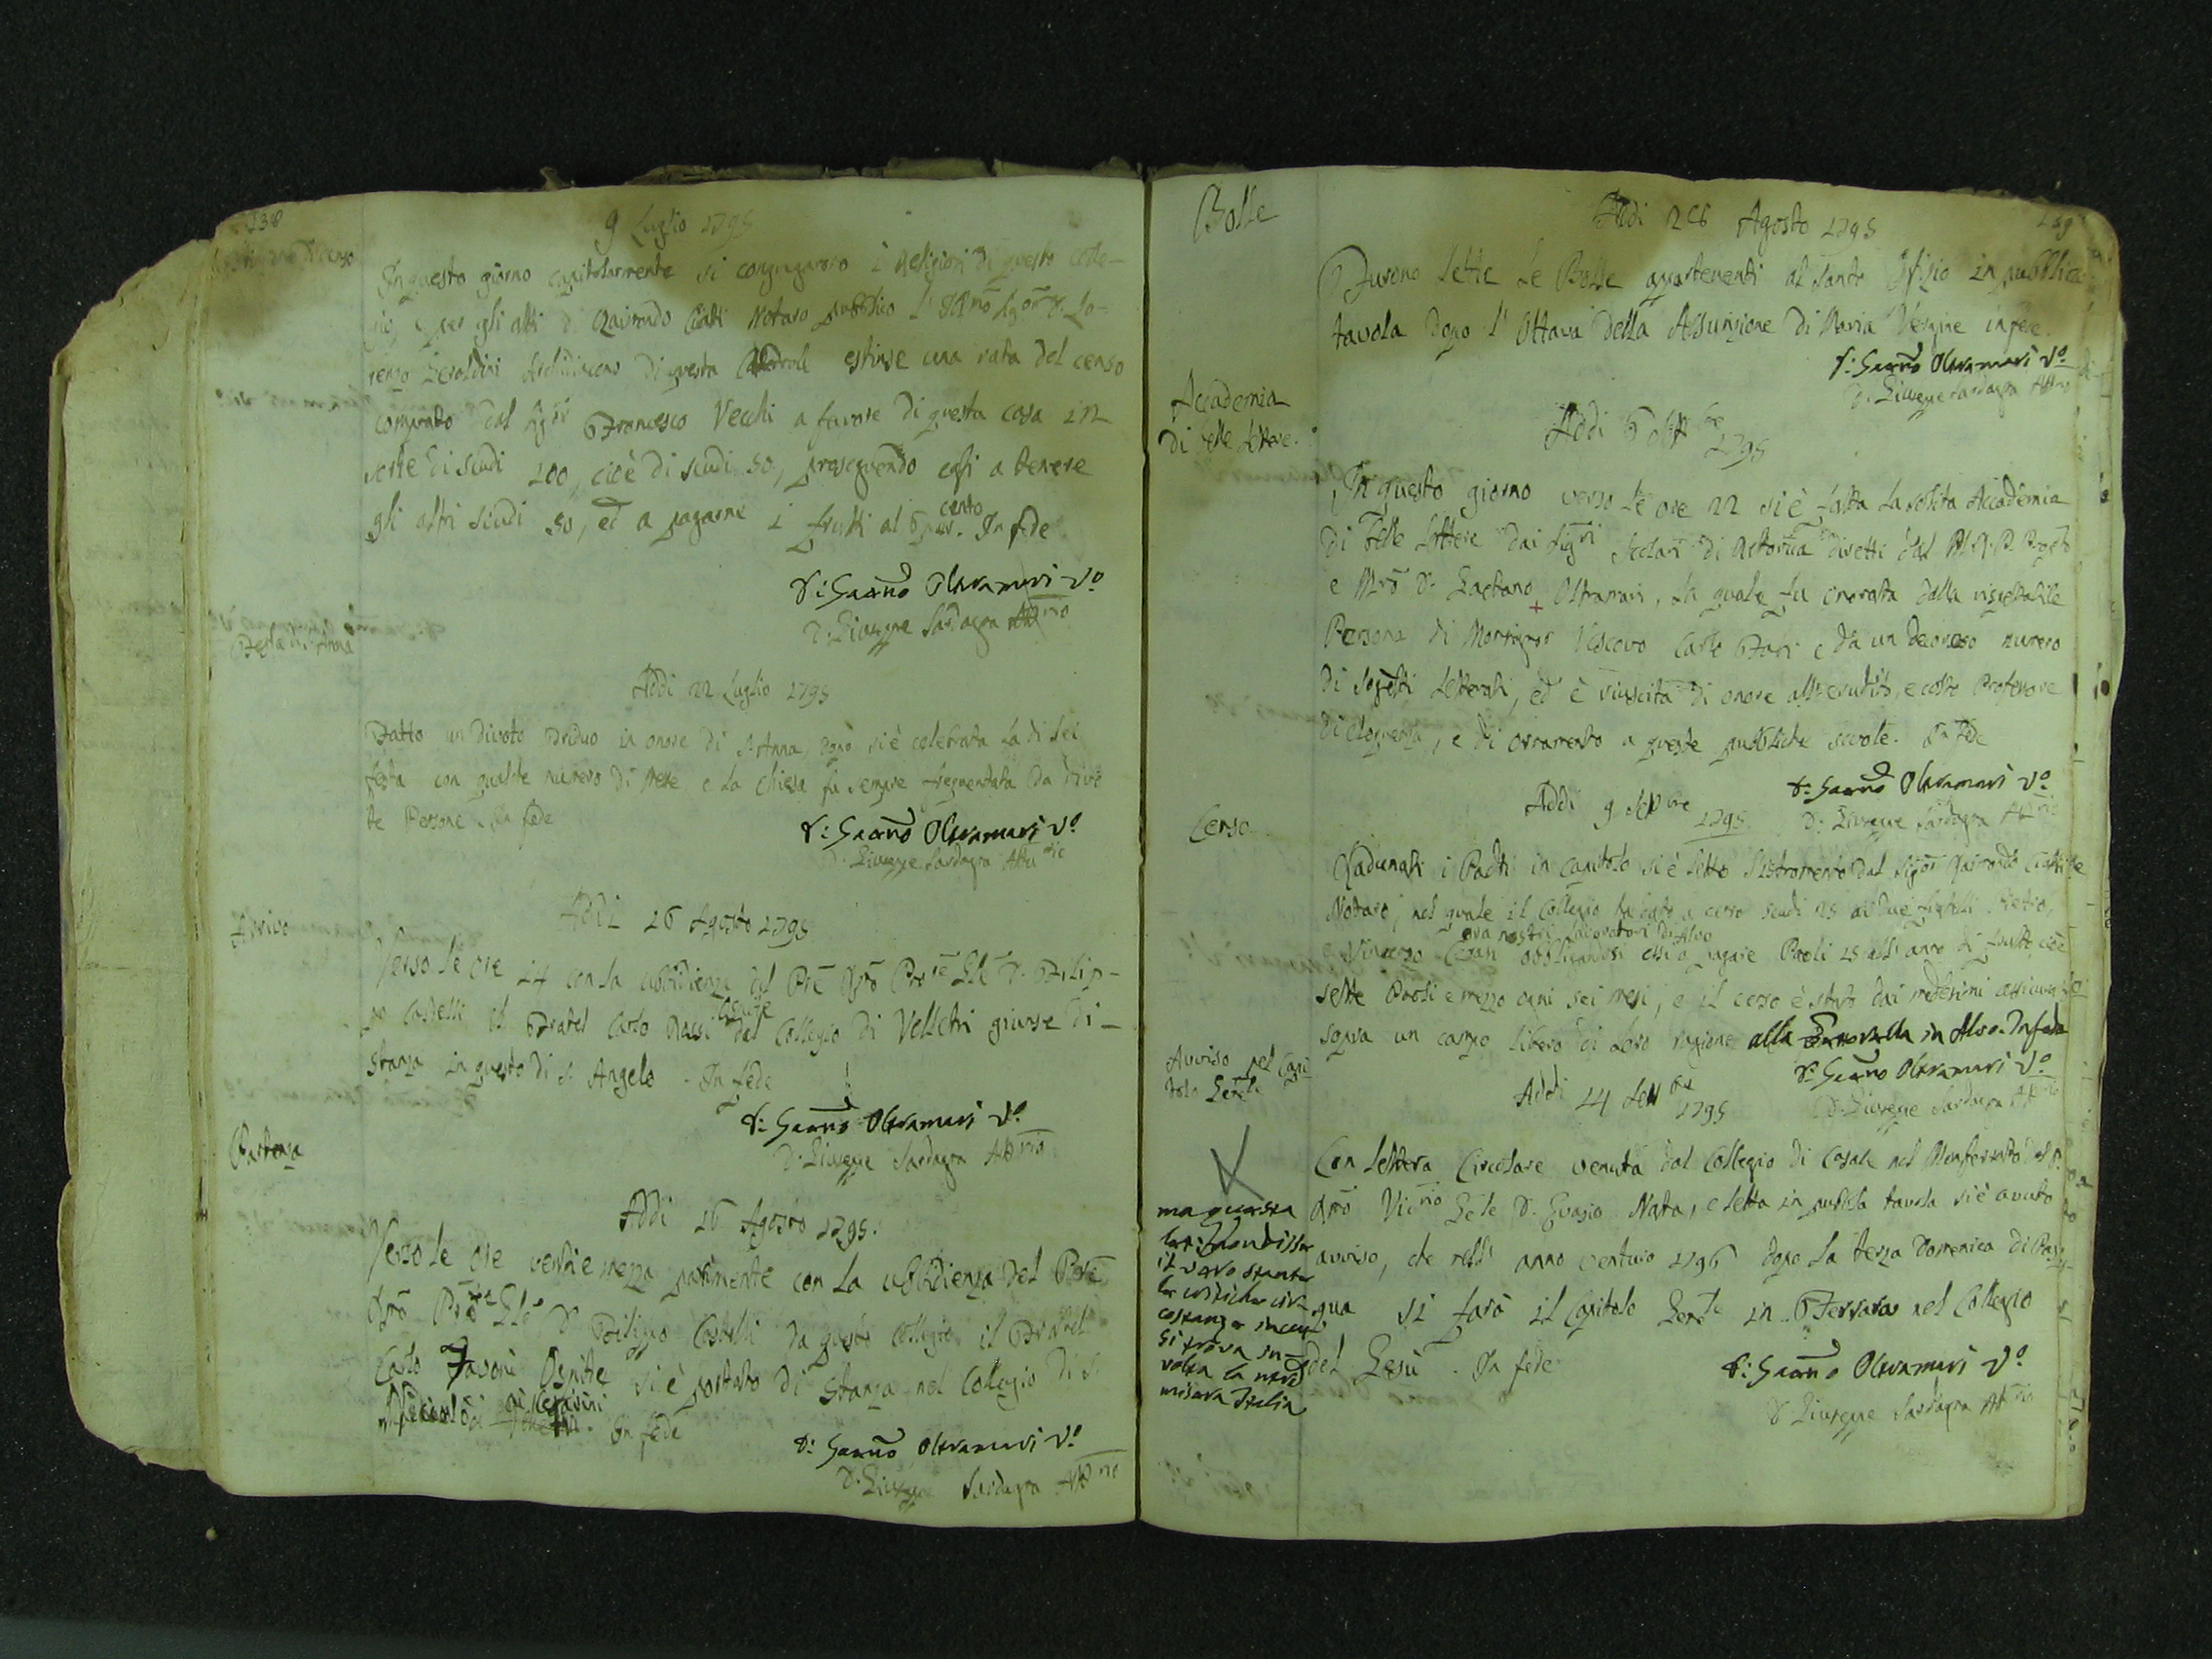 138
9 Luglio 1795
In questo giorno capitolarmente si congregarono i Religiosi di questo Colle-
gio, e per gli atti di Raimondo Ciatti Notaro pubblico l'Illmo Sigr D. Lo-
renzo Geraldini Archidiacono di questa Cattedrale estinse una rata del censo
comprato dal Sigr Francesco Vecchi a favore di questa casa in
sorte di scudi 100, cioè di scudi 50, proseguendo egli a tenere
gli altri scudi 50, ed a pagarne i frutti al 6 per cento. In fede
D: Gaetno Oltramari Vo
D. Giuseppe Sardagna Attrio
Festa di S. Anna
Addi 22 Luglio 1795
Fatto un divoto Triduo in onore di S. Anna, dopo si è celebrata la di lei
festa con qualche numero di Messe e la Chiesa fu sempre frequentata da divo
te Persone. In fede
D: Gaetno Oltramari Vo
D. Giuseppe Sardagna Attuario
Arrivo
Addi 16 Agosto 1795
Verso le ore 14 con la ubbidienza del Pre Rmo Prore Gle D. Filip-
po Castelli il Fratel Carlo Rassi Ospite dal Collegio di Velletri giunse di
stanza in questo di S. Angelo. In fede
D: Gaetno Oltramari Vo
D. Giuseppe Sardagna Attrio
Partenza
Addi 16 Agosto 1795.
Verso le ore venti e mezza parimente con la ubbidienza del Pre
Rmo Prore Gle D Filippo Castelli da questo Collegio il Fratel
Carlo Favoni Ospite si è portato di stanza nel Collegio di S.
Niccolò di In fede
D: Gaetno Oltramari Vo
D. Giuseppe Sardagna Attrio
Bolle
Addi 26 Agosto 1795
139
Furono lette le Bolle apartenenti al Santo Ofizio in pubblica
tavola dopo l'Ottava della Assunzione di Maria Vergine in fede.
D: Gaetno Oltramari Vo
D. Giuseppe Sardagna Attrio
Accademia
di belle lettere.
Addi 6 1795
In questo giorno verso le ore 22 si è fatta la solita Accademia
di belle lettere dai Sigri Scolari di Rettorica diretti dal M. R. P.
e Mro D. Gaetano Oltramari, la quale fu onorata dalla rispettabile
Persona di Monsignor Vescovo Carlo Fari e da un decoroso numero
di Sogetti Letterati, ed è riuscita di onore all'erudito, e colto Professore
di eloquenza, e di ornamento a queste pubbliche scuole. In fede
D: Gaetno Oltramari Vo
D: Giuseppe Sardagna Attrio
Censo
Addi 9 Settbre 1795
Radunati i Padri in Capitolo si è letto l'Istromento dal Sigor Raimondo Ciatti
Notaro, nel quale il Collegio ha dato a censo scudi 25 ai due fratelli Pietro,
ora nostri lavoratori di Alvo
e Vincenzo obbligandosi essi a pagare Paoli 15 all'anno di frutto cioè
sette Paoli e mezzo ogni sei mesi, e il censo è stato dai medesimi assicurato
sopra un campo libero di loro ragione alla in Alvo. In fede
D: Gaetno Oltramari Vo
D: Giuseppe Sardagna Attrio
Avviso pel Capi-
tolo Genle
Addi 14 Settbre 1795
Con lettera Circolare venuta dal Collegio di Casale nel Monferrato del P.
Rmo Vicrio Gele D. Evasio Natta, e letta in pubblica tavola si è avuto
avviso, che nell'anno venturo 1796 dopo la terza Domenica di Pas-
qua si farà il Capitolo Genle in Ferrara nel Collegio
del Gesù. In fede
D: Gaetno Oltramari Vo
D Giuseppe Sardagna Attrio
ma questa
il vero stante
le critiche cir-
costanze in cui
si trova in-
volta la
misera Italia